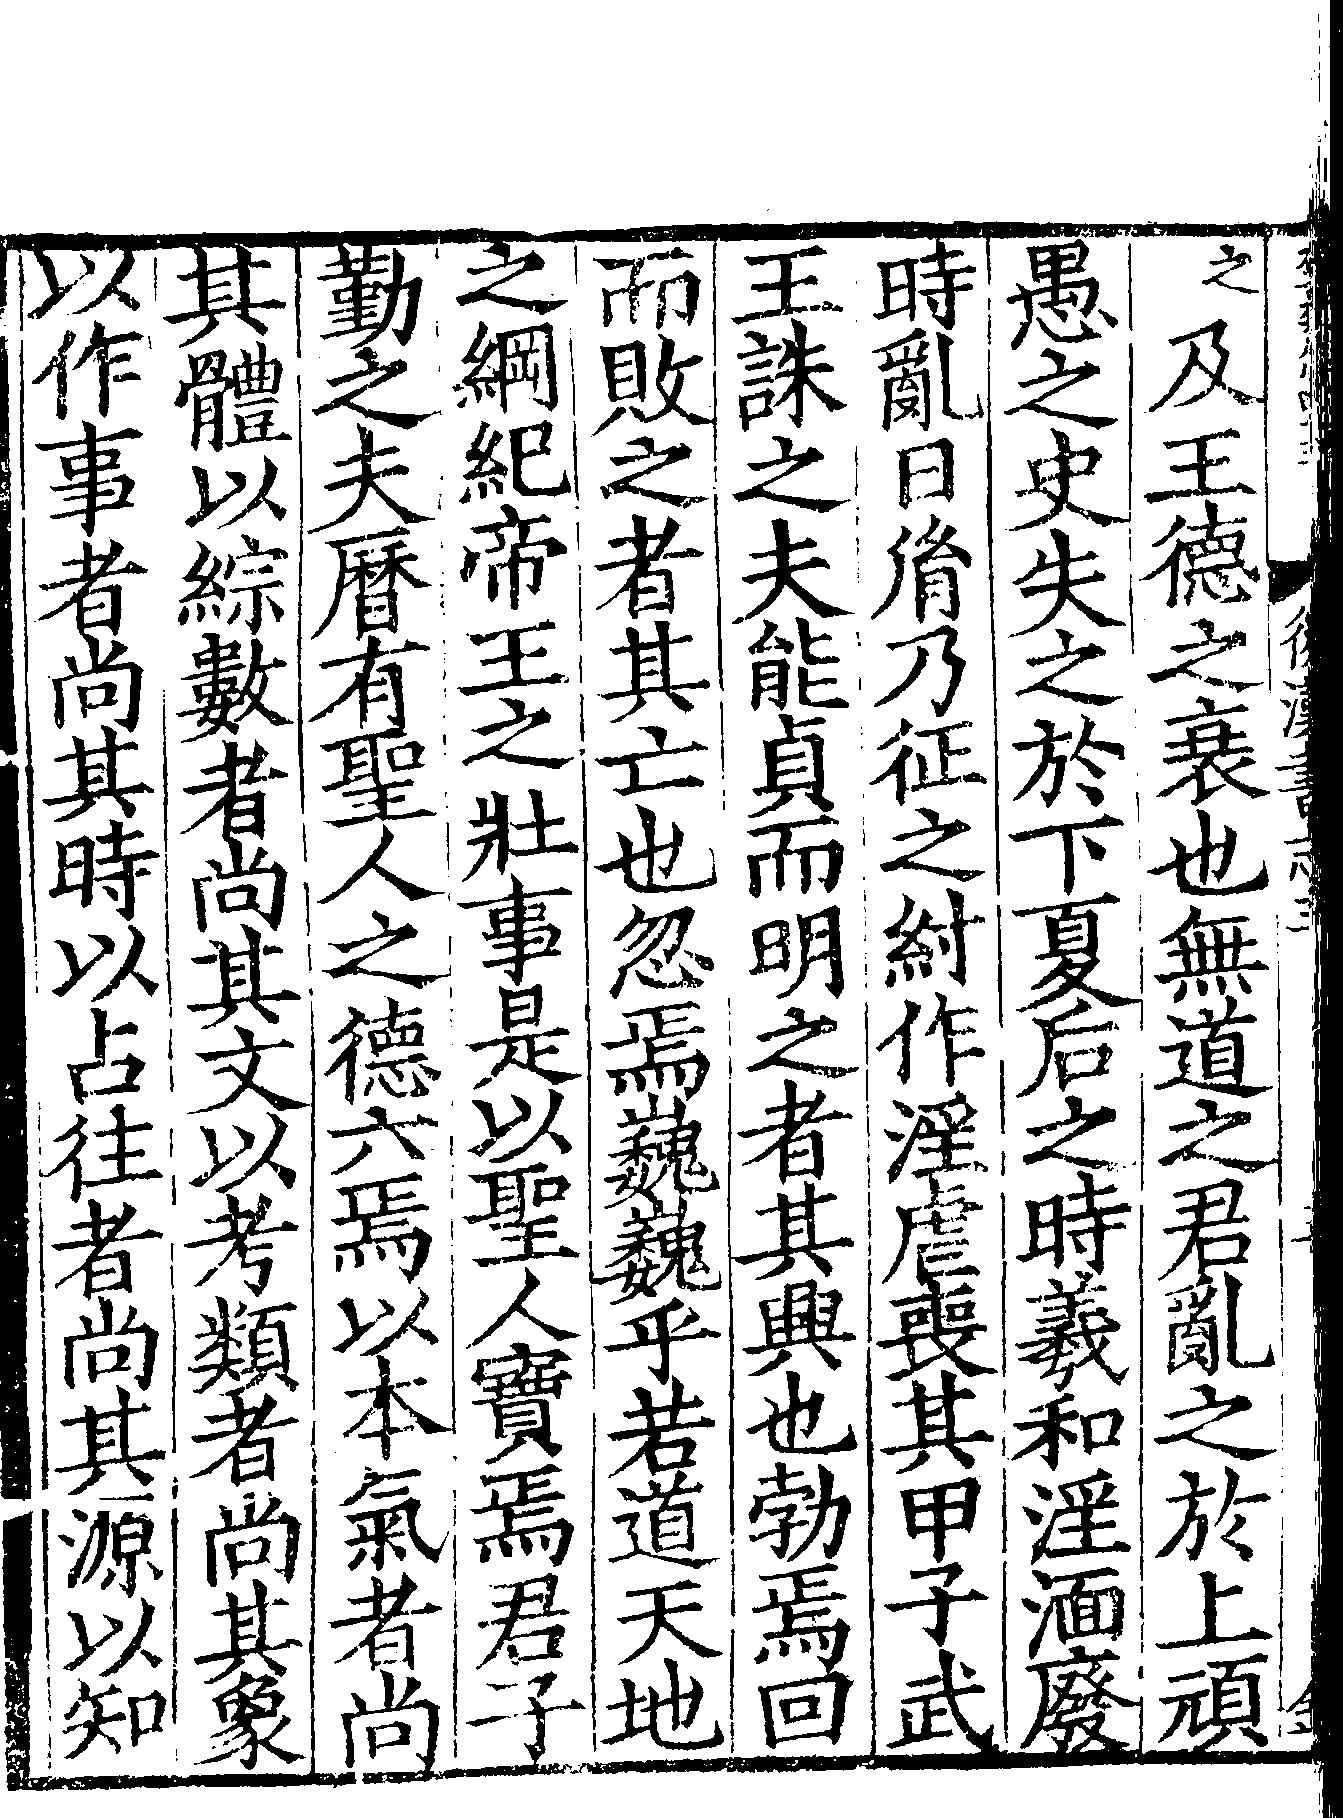 之及王德之衰也無道之君亂之於上頑
愚之史失之於下夏后之時羲和淫湎廢
時亂日㣧乃征之紂作淫虐喪其甲子武
王誅之夫能貞而明之者其興也勃焉回
而敗之者其亡也忽焉巍巍乎若道天地
之綱紀帝王之壯事是以聖人寶焉君子
勤之夫曆有聖人之德六焉以本氣者尚
其體以綜數者尚其文以考類者尚其象
以作事者尚其時以占往者尚其源以知